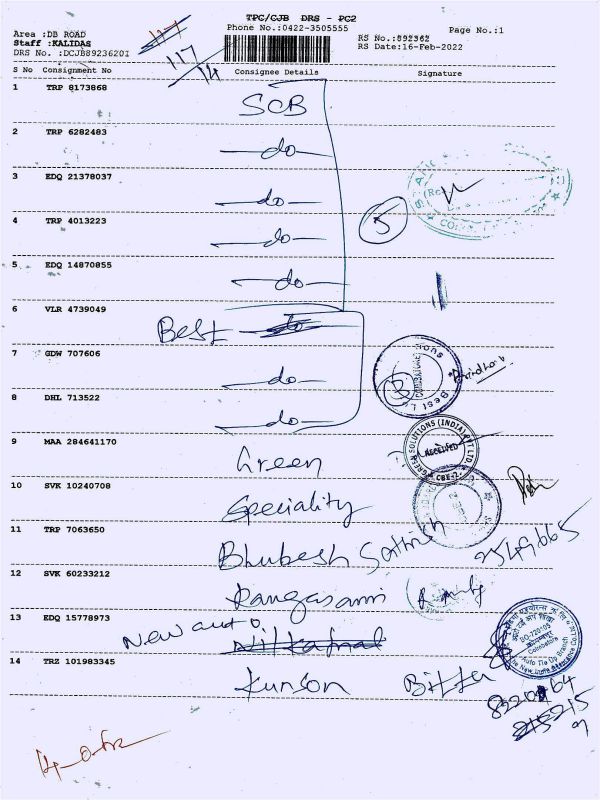 TPC/CJB DRS - PC2
Phone No.:0422-3505555
Page No.:1
Area :DB ROAD
Staff :KALIDAS
DRS No. :DCJB89236201
RS No.:892362
RS Date:16-Feb-2022
117
117/14
S No Consignment No Consignee Details Signature
1 TRP 8173868 SCB
2 TRP 6282483 do
3 EDQ 21378037 do
4 TRP 4013223 do
5
5 EDQ 14870855 do
6 VLR 4739049 Best do
7 GDW 707606 do
3
8 DHL 713522 do
9 MAA 284641170 Green
GREEN SOLUTIONS (INDIA) PVT LTD.
ACCEPTED
CBE-2
10 SVK 10240708 Speciality
11 TRP 7063650 Bhubesh Sathish
2549665
12 SVK 60233212 Rangasami
13 EDQ 15778973 New auto
BO-720105
Coimbatore
Auto Tie Up Branch
The New India Assurance Co.
14 TRZ 101983345 Kunson